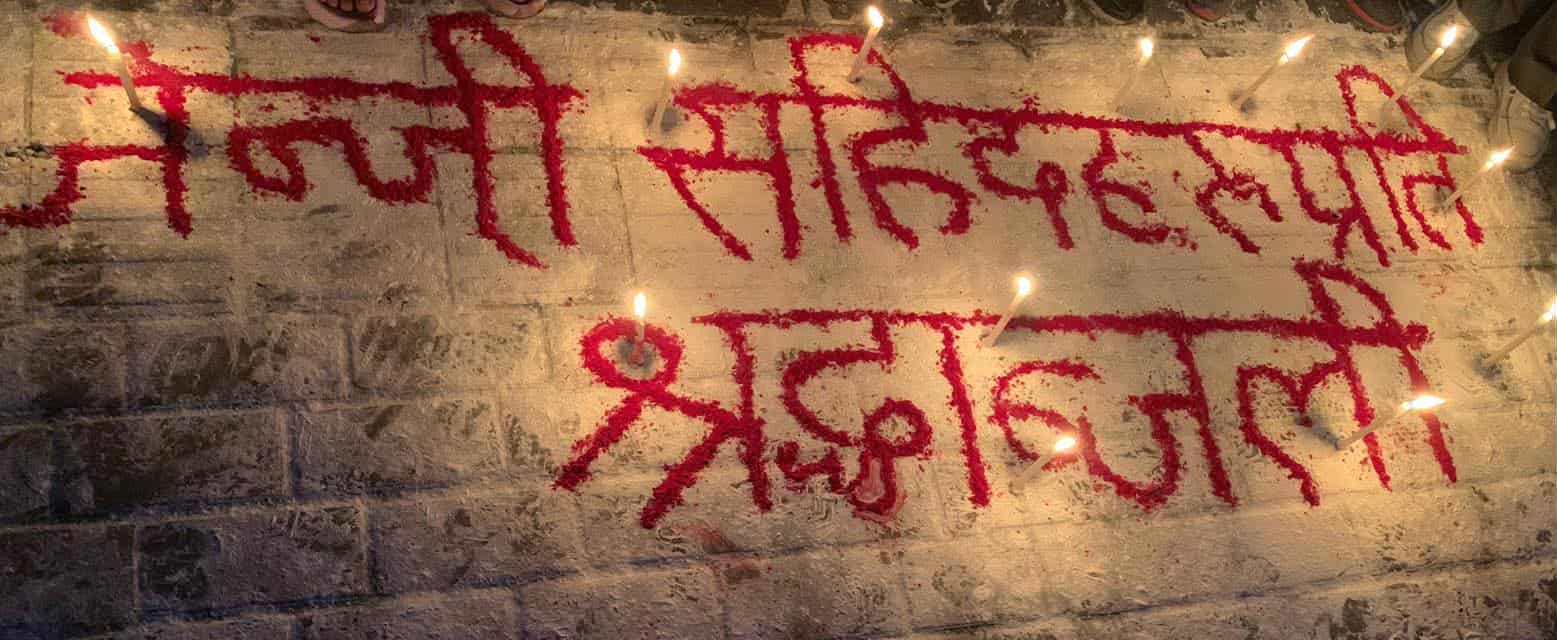 जेन्जी सहिदहरुप्रति
श्रद्धाञ्जली